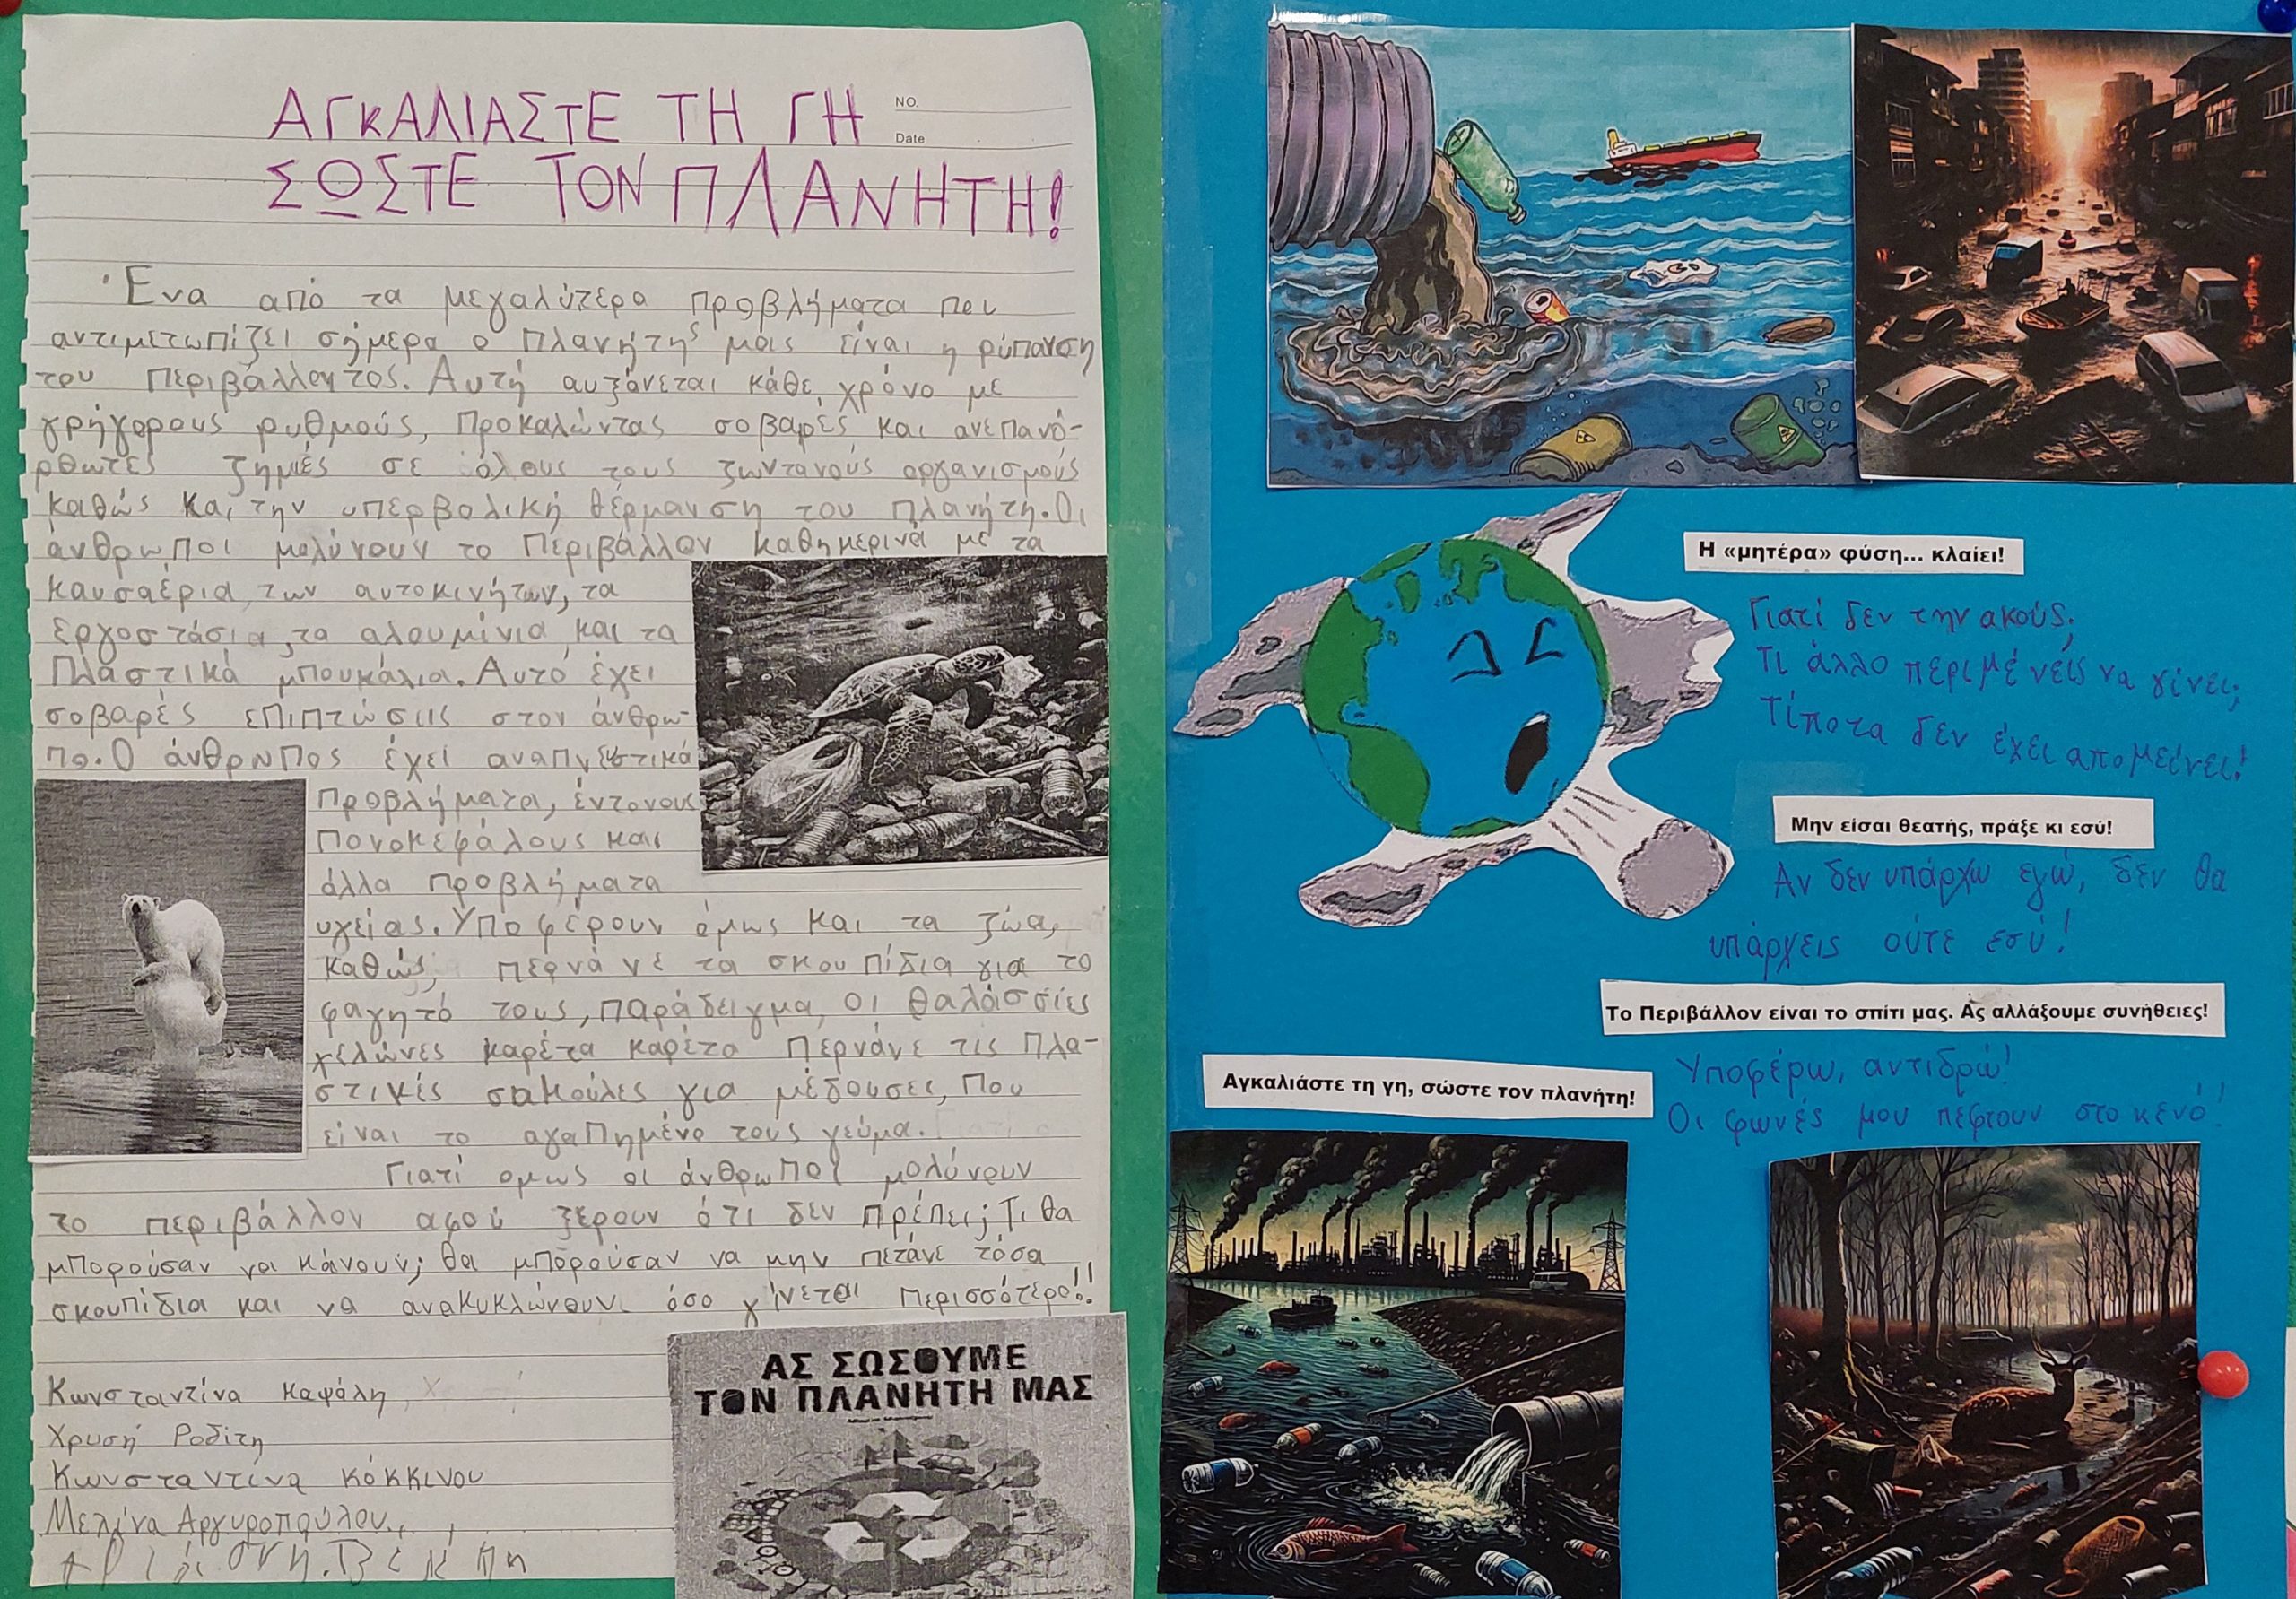 ΑΓΚΑΛΙΑΣΤΕ ΤΗ ΓΗ
NO.
Date
ΣΩΣΤΕ ΤΟΝ ΠΛΑΝΗΤΗ!
Ένα από τα μεγαλύτερα προβλήματα που
αντιμετωπίζει σήμερα ο πλανήτης μας είναι η ρύπανση
του περιβάλλοντος. Αυτή αυξάνεται κάθε χρόνο με
γρήγορους ρυθμούς, προκαλώντας σοβαρές και ανεπανό-
ρθωτες ζημιές σε όλους τους ζωντανούς οργανισμούς
καθώς και την υπερβολική θέρμανση του πλανήτη. Οι
άνθρωποι μολύνουν το περιβάλλον καθημερινά με τα
καυσαέρια των αυτοκινήτων, τα
εργοστάσια, τα αλουμίνια και τα
πλαστικά μπουκάλια. Αυτό έχει
σοβαρές επιπτώσεις στον άνθρω-
πο. Ο άνθρωπος έχει αναπνευστικά
προβλήματα, έντονους
πονοκεφάλους και
άλλα προβλήματα
υγείας. Υποφέρουν όμως και τα ζώα,
καθώς περνάνε τα σκουπίδια για το
φαγητό τους, παράδειγμα, οι θαλάσσιες
χελώνες καρέτα καρέτα περνάνε τις πλα-
στικές σακούλες για μέδουσες, που
είναι το αγαπημένο τους γεύμα.
Γιατί ομως οι άνθρωποι μολύνουν
το περιβάλλον αφού ξέρουν ότι δεν πρέπει; Τι θα
μπορούσαν να κάνουν; Θα μπορούσαν να μην πετάνε τόσα
σκουπίδια και να ανακυκλώνουν όσο γίνεται περισσότερο!!
Κωνσταντίνα Καψάλη
Χρυσή Ροδίτη
Κωνσταντίνα Κόκκινου
Μελίνα Αργυροπούλου
ΑΣ ΣΩΣΟΥΜΕ
ΤΟΝ ΠΛΑΝΗΤΗ ΜΑΣ
Η «μητέρα» φύση... κλαίει!
Γιατί δεν την ακούς;
Τι άλλο περιμένεις να γίνει;
Τίποτα δεν έχει απομείνει!
Μην είσαι θεατής, πράξε κι εσύ!
Αν δεν υπάρχω εγώ, δεν θα
υπάρχεις ούτε εσύ!
Το Περιβάλλον είναι το σπίτι μας. Ας αλλάξουμε συνήθειες!
Υποφέρω, αντιδρώ!
Οι φωνές μου πέφτουν στο κενό!
Αγκαλιάστε τη γη, σώστε τον πλανήτη!